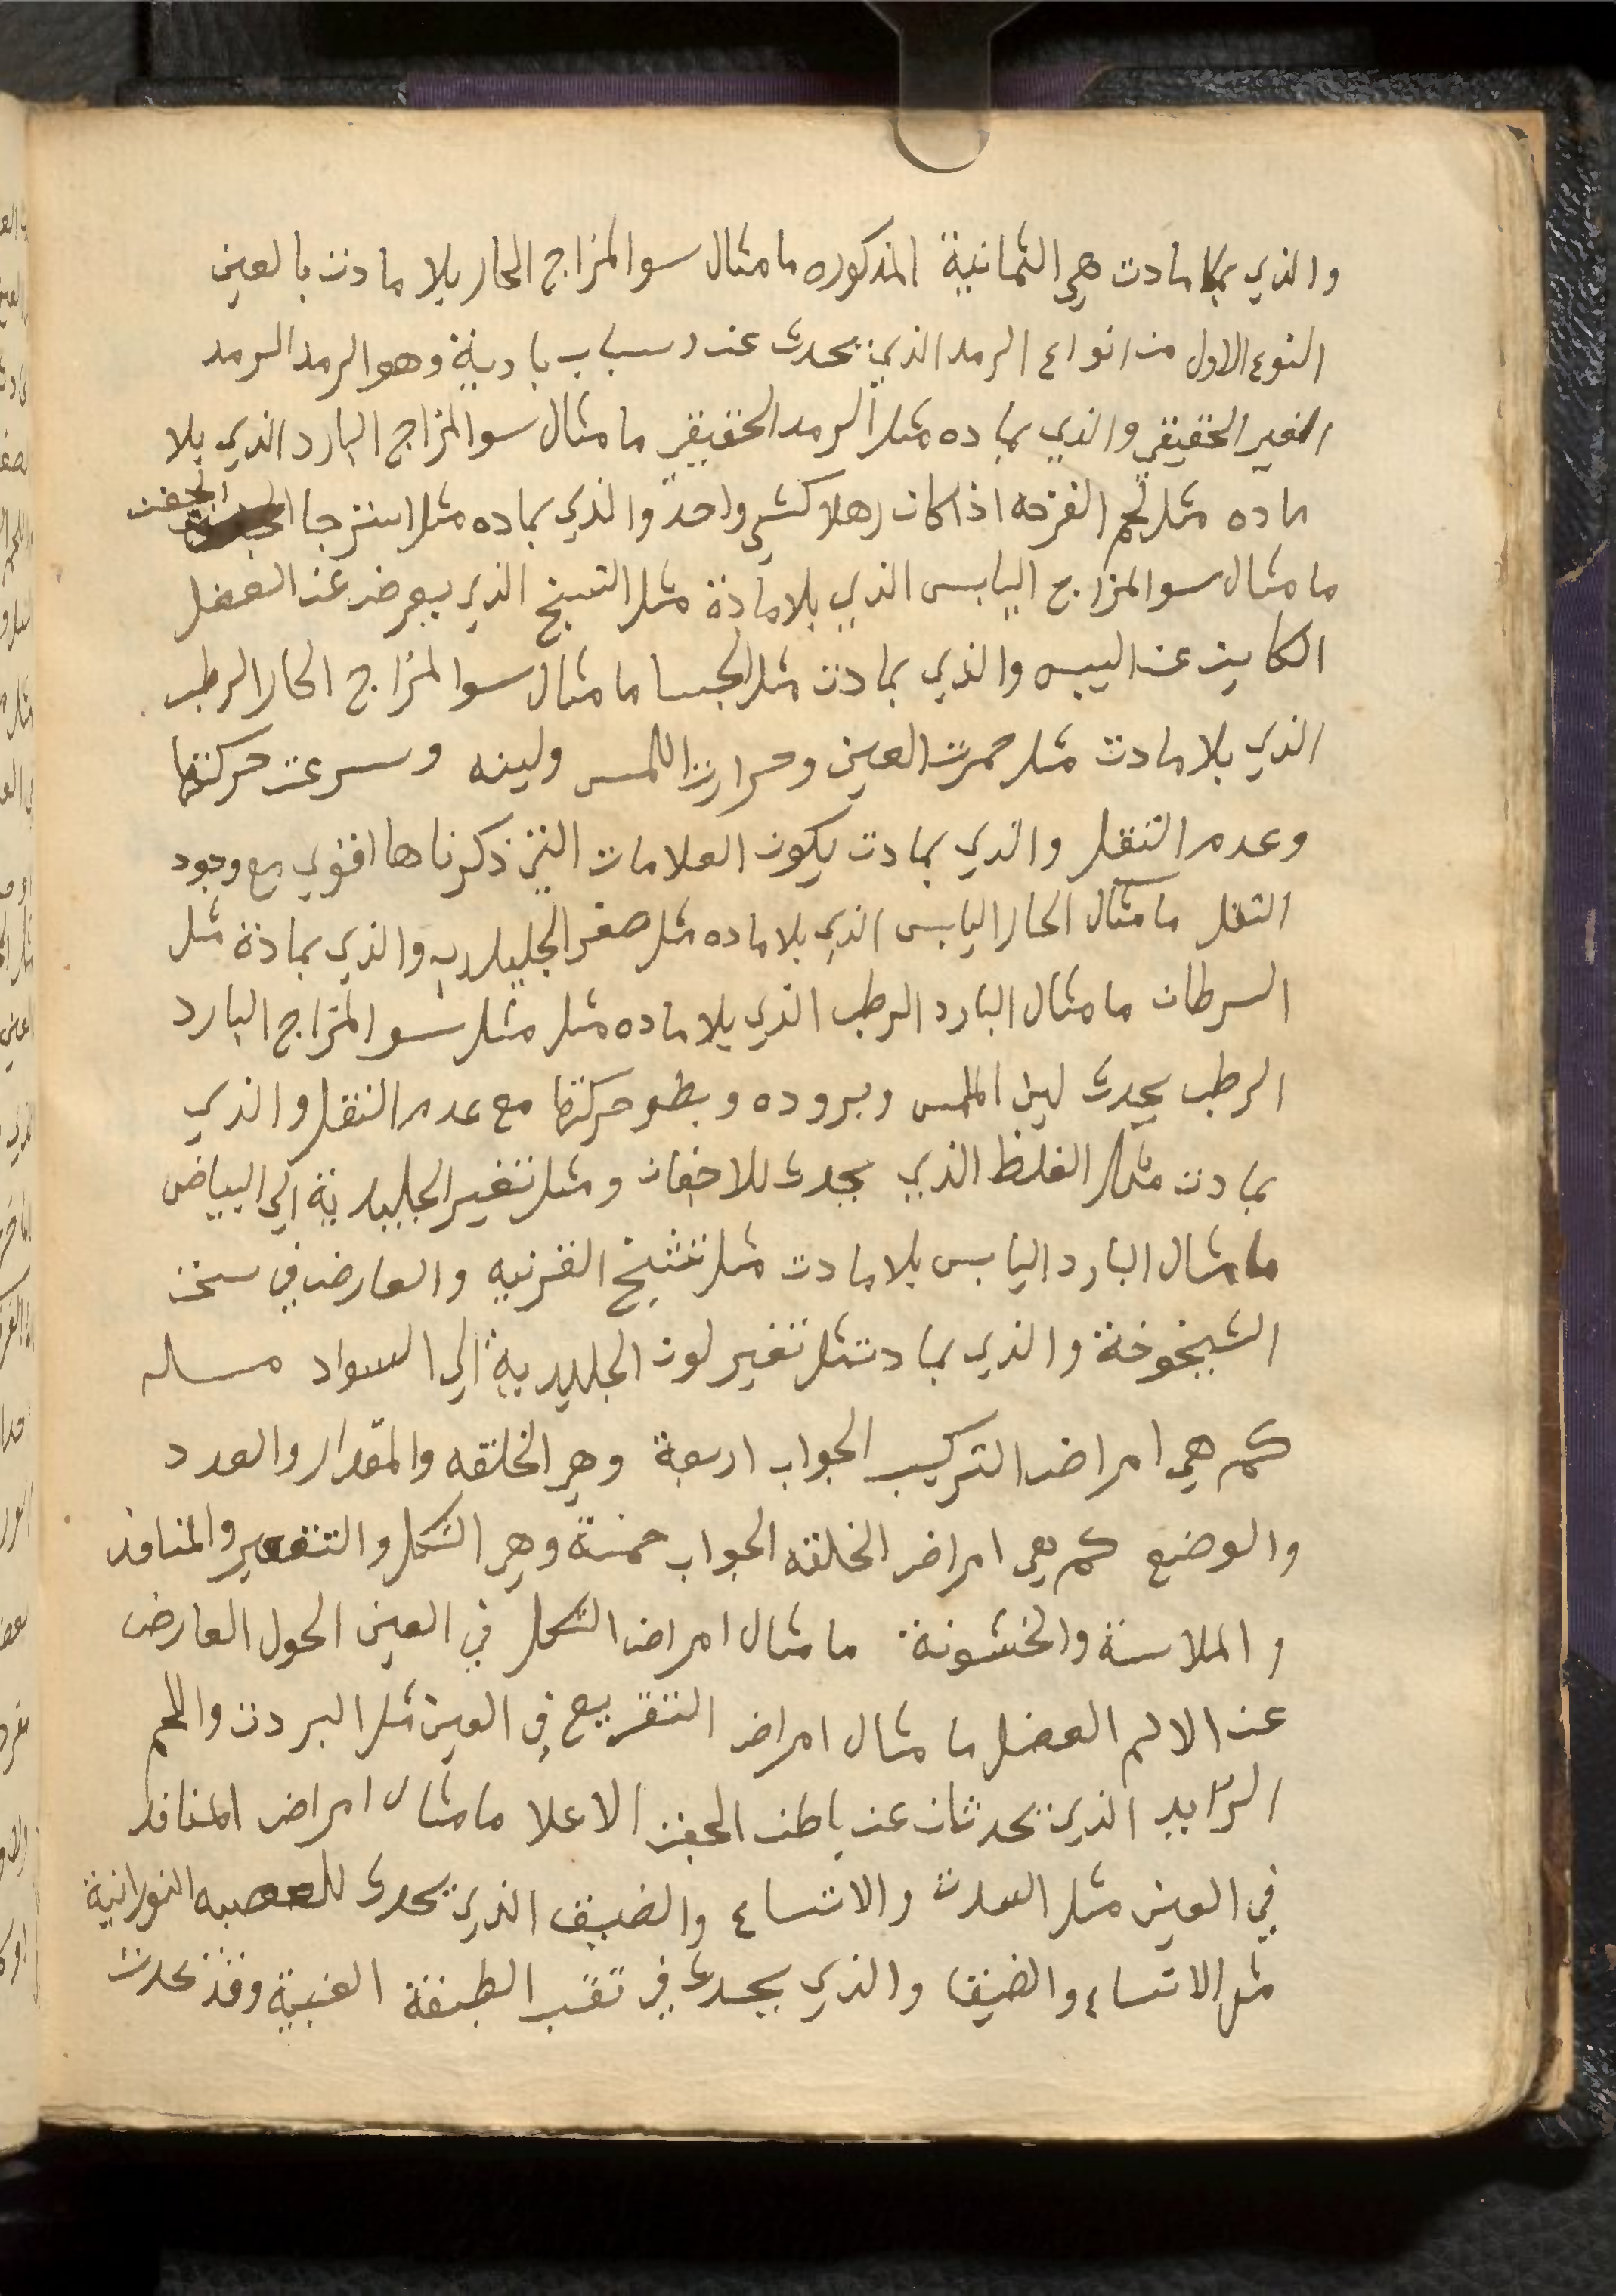 والذي بمادت هي الثمانية المذكوره ما مثال سو المزاج الحار بلا مادت بالعين
النوع الاول من انواع الرمد الذي يحدث عن اسباب بادية وهو الرمد الرمد
الغير الحقيقي والذي بماده مثل الرمد الحقيقي ما مثال سو المزاج البارد الذي بلا
ماده مثل لحم القرحه اذا كان رهلا كشي واحد والذي بماده مثل استرجا الجفن
ما مثال سو المزاج اليابس الذي بلا مادة مثل التسنج الذي يعرض عن العضل
الكاين عن اليبس والذي بمادت مثل الجسا ما مثال سو المزاج الحار الرطب
الذي بلا مادت مثل حمرت العين وحرارت اللمس ولينه وسرعت حركتها
وعدم التقل والذي بمادت يكون العلامات التي ذكرناها اقوي مع وجود
التقل ما مثال الحار اليابس الذي بلا ماده مثل صغر الجليديه والذي بمادة مثل
السرطان ما مثال البارد الرطب الذي بلا ماده مثل مثل سو المزاج البارد
الرطب يحدث لين الملمس وبروده وبطو حركتها مع عدم التقل والذي
بمادت مثل الغلظ الذي يحدث للاجفان ومثل تغير الجليدية الي البياض
ما مثال البارد اليابس بلا مادت مثل تشنج القرنيه والعارض في سن
الشيخوخة والذي بمادت مثل تغير لون الجليدية الي السواد مساله
كم هي امراض التركيب الجواب اربعة وهي الخلقه والمقدار والعدد
والوضع كم هي امراض الخلقه الجواب خمسة وهي الشكل والتقعير والمنافذ
والملاسة والخشونة ما مثال امراض الشكل في العين الحول العارض
عن الالم العضل ما مثال امراض التقريع في العين مثل البردت واللحم
الزايد الذين يحدثان عن باطن الجفن الاعلا ما مثال امراض المنافذ
في العين مثل السدت والاتساع والضيق الذين يحدث للعصبه النورانية
مثل الاتساع والضيق والذي يحدث في تقب الطبقة العنبية وقد تحدث